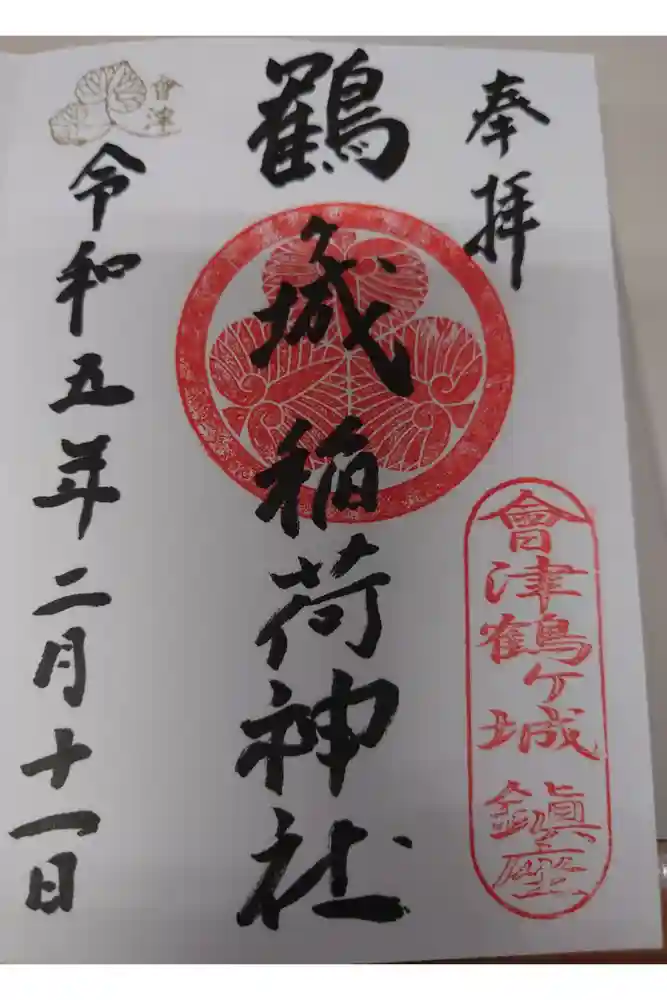 奉拝
會津鶴ヶ城鎮座
鶴ヶ城稲荷神社
令和五年二月十一日
會津